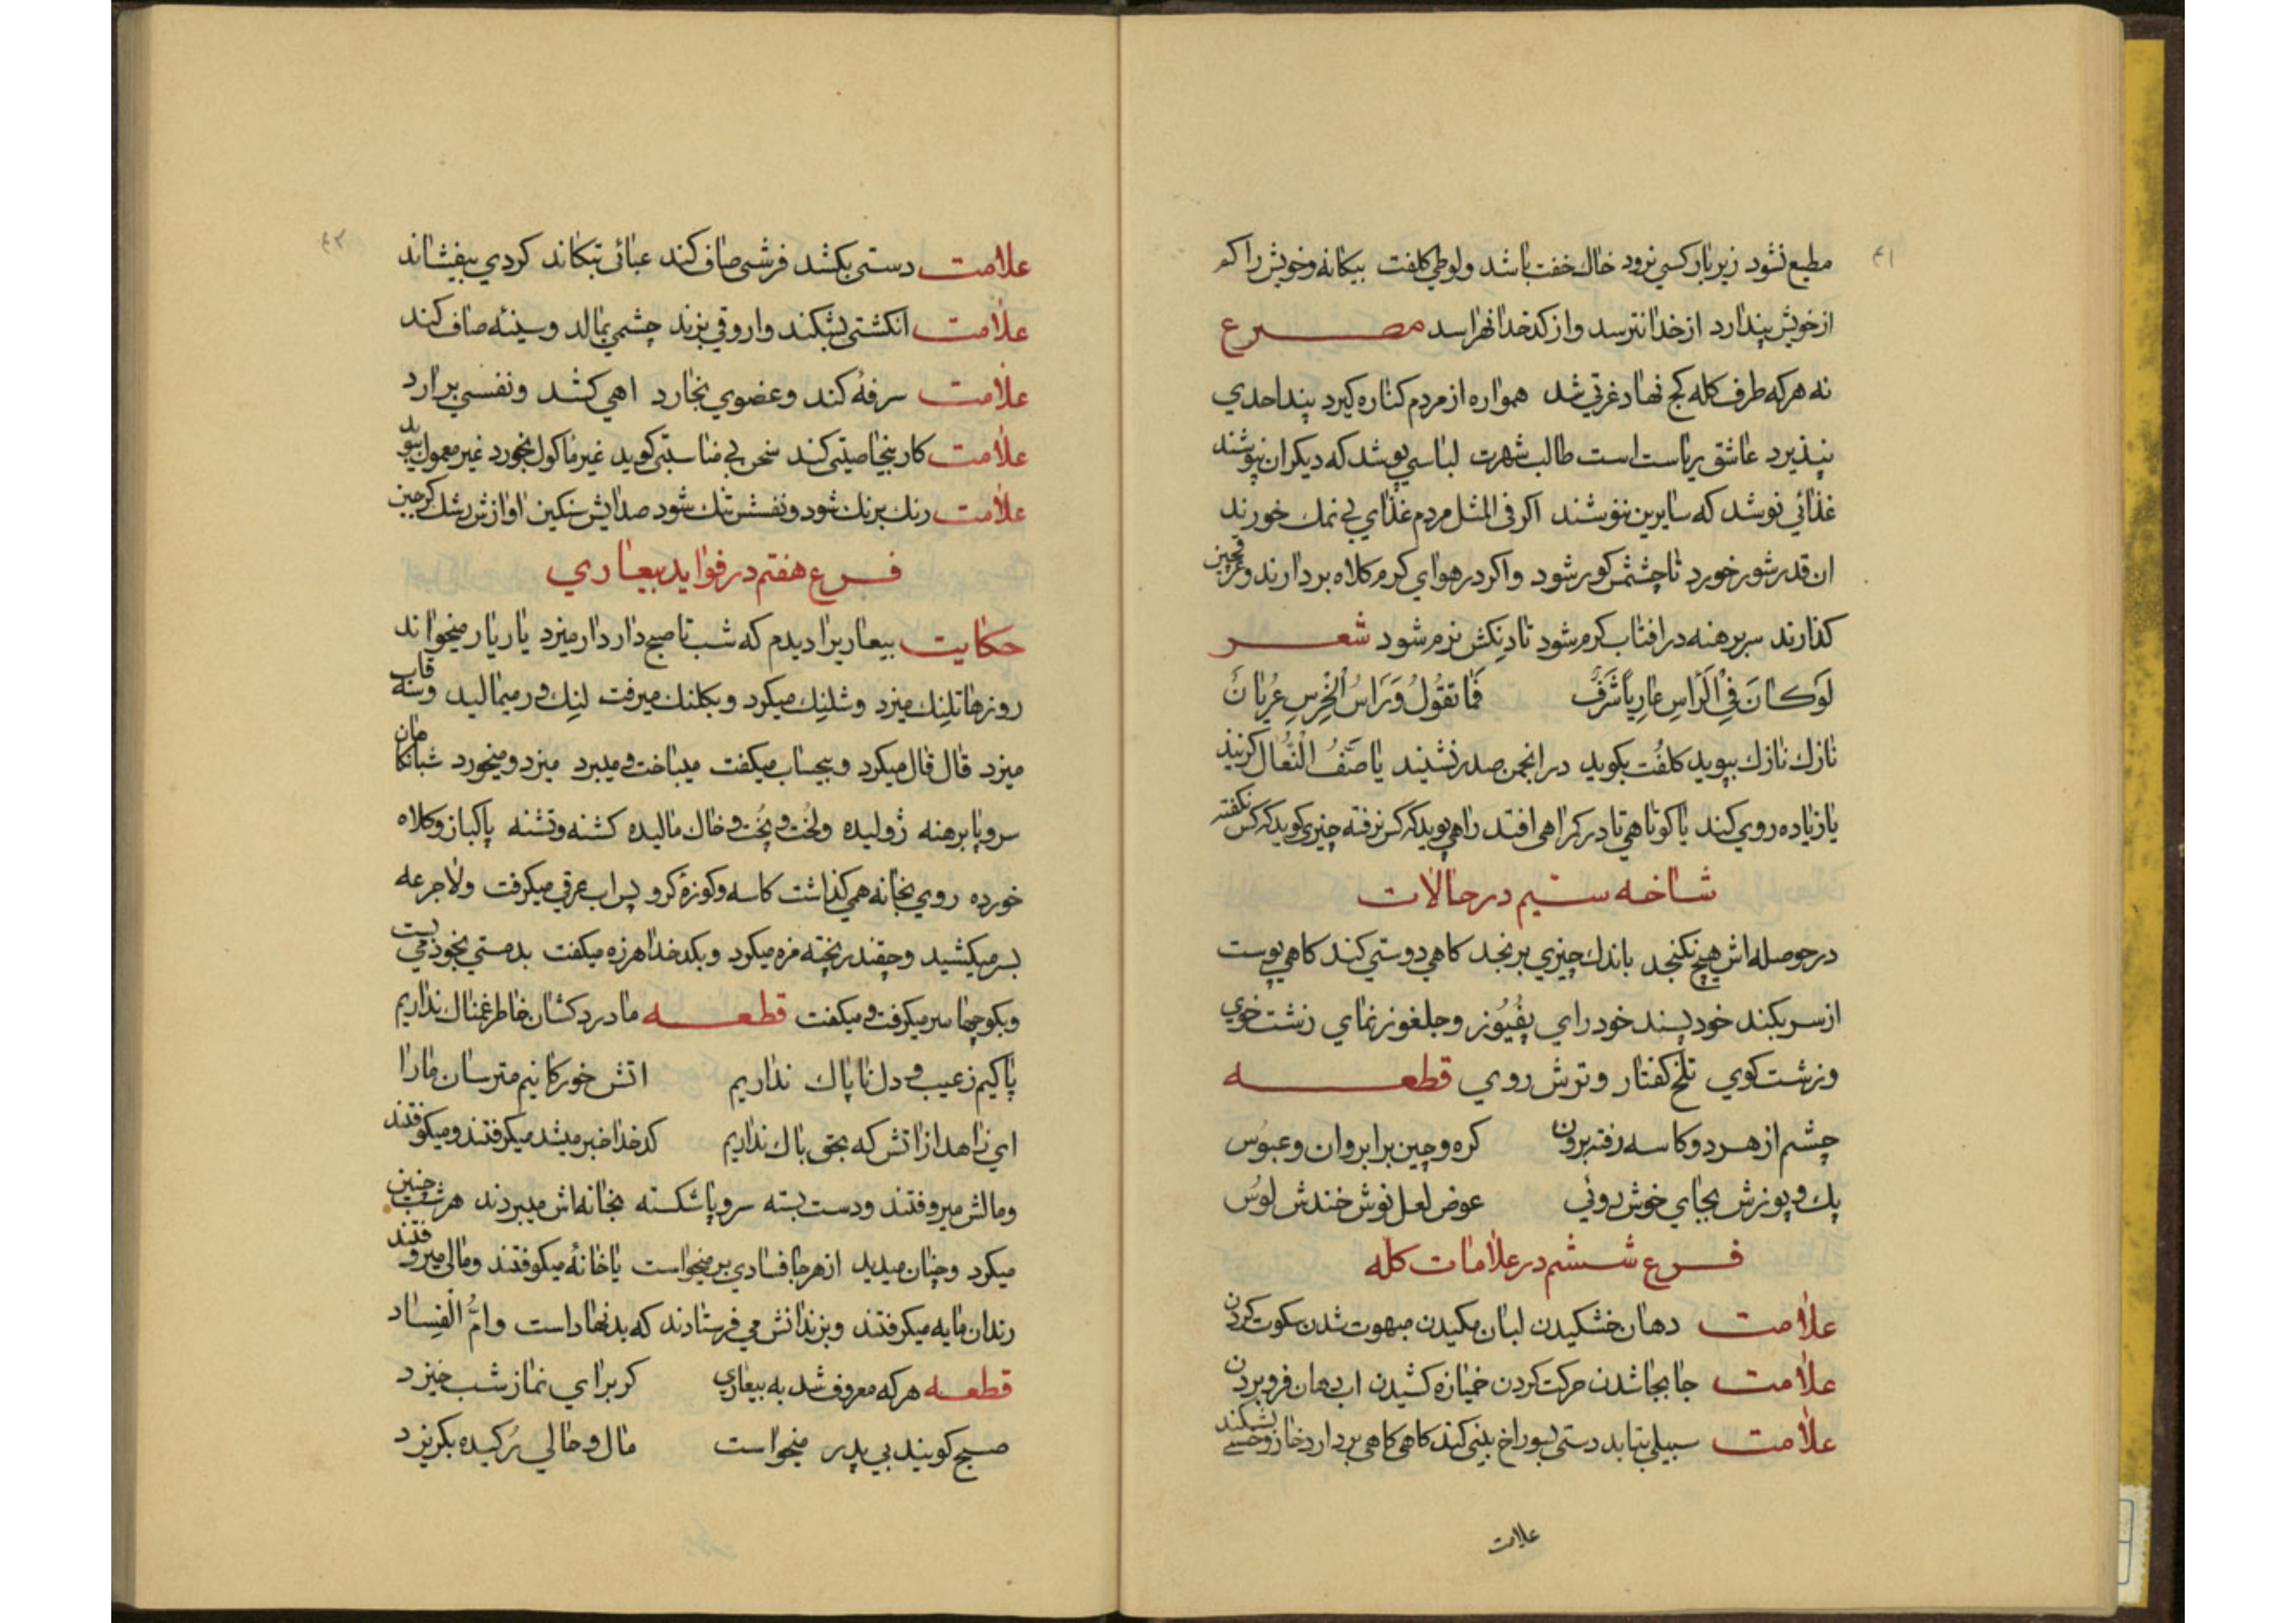 ۴۱
مطیع نشود زیر بار کسی نرود خالك خفت باشد ولوطی کلفت بیکانه وخویش را کم
ازخویش پندارد ازخدا نترسد واز کدخدا نهراسد مصرع
نه هرکه طرف کله کج نهاد غرتی شد همواره از مردم کناره کیرد پند احدي
نپذیرد عاشق ریاست است طالب شهرت لباسی پوشد که دیکران نپوشند
غذائي نوشد که سایرین ننوشند اکر فی المثل مردم غذاي بی نمك خورند
ان قدر شور خورد تا چشمش کور شود واکر در هواي کرم کلاه بردارند وعرقچین
کذارند سر برهنه در افتاب کرم شود تا دنکش نرم شود شعر
لَوکانَ فِي الرَاسِ عارِیاً شَرَفٌ فَما تقولُ وَرَاسُ الخِرسِ عُریانٌ
نازك نازك بپوید کلفُت بکوید در انجمن صدر نشیند یا صَفُ النِّعال کزیند
یا زیاده روي کند یا کوتاهی تا در کمراهی افتد راهی پوید که کس نرفته چیزی کوید که کس نکفته
شاخه ستیم در حالات
در حوصله اش هیچ نکنجد باندك چیزي برنجد کاهی دوستی کند کاهی پوست
از سر بکند خود پسند خود راي پفُیوز وجلغوز نماي زشت خوي
وزشت کوي تلخ کفتار وترش روي قطعه
چشم از هر دو کاسه رفته برون کره وچین بر ابروان وعبوُس
پك و پوزش بجاي خوش روئي عوض لعل نوش خندش لوُس
فرع ششم در علامات کله
علامت دهان خشکیدن لبان مکیدن مبهوت شدن سکوت کردن
علامت جابجا شدن حرکت کردن خمیازه کشیدن اب دهان فرو بردن
علامت سبیلی بتابد دستی بسوراخ بینی کند کاهی کاهی بردارد خار وخسی بشکند
علامت
۴۲
علامت دستی بکشد فرشی صاف کند عبائی بتکاند کردي بیفشاند
علامت انکشتی بشکند واروقی بزند چشمی بمالد وسینئه صاف کند
علامت سرفهٔ کند وعضوي بخارد اهی کشد ونفسی برارد
علامت کار بیخاصیتی کند سخن بی مناسبتی کوید غیر ماکول بخورد غیر معمول ببوید
علامت رنك برنك شود ونفسش تنك شود صدایش سنکین اوازش رشك کرجین
فرع هفتم در فواید بیعاري
حکایت بیعاریرا دیدم که شب تا صبح دار دار میزد یار یار میخواند
روزها تلنك میزد وشلنك میکرد وبکلنك میرفت لنك ور میمالید وسه قاب
میزد قال قال میکرد وبیحساب میکفت میباخت و میبرد میزد ومیخورد شبانکاهان
سر و پا برهنه ژولیده ولُخت و پخُت و خاك مالیده کشنه وتشنه پاکباز وکلاه
خورده روي بخانه همی کذاشت کاسه وکوزهٔ کرو پس اب عرقی میکرفت ولا جرعه
بسر میکشید وچقندر پخته مزه میکرد وبکدخدا هرزه میکفت بدمستی بخود می بست
وبکوچها سر میکرفت و میکفت قطعه ما درد کشان خاطر غمناك نداریم
پاکیم زعیب و دل ناپاك نداریم اتش خورکانیم مترسان ما را
اي زاهد از اتش که بحق باك نداریم کدخدا خبر میشد میکرفتند ومیکوفتند
ومالش میروفتند ودست بسته سر و پا شکسته بخانه اش میبردند هر شب چنین
میکرد وچنان میدید از هر جا فسادي بر میخواست یا خانهٔ میکوفتند ومالی میروفتند
رندان مایه میکرفتند وبزندانش می فرستادند که بد نهاد است وامُّ الفِساد
قطعه هرکه معروف شد به بیعاري کر براي نماز شب خیزد
صبح کویند بی پدر میخواست مال و حالی رُکیده بکریزد